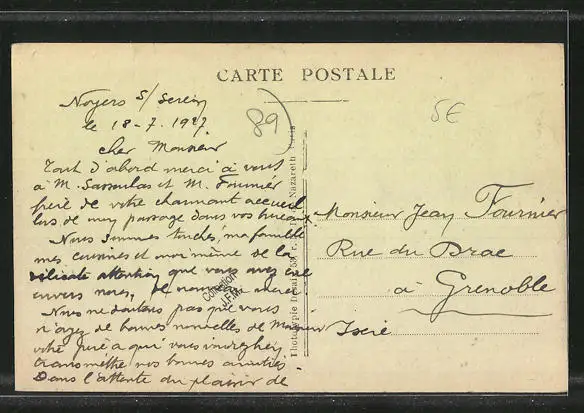 CARTE POSTALE
Noyers s/ Serein
le 18-7. 1927.
89
5E
cher Monsieur
Tout d'abord merci à vous
à M. Sassoulas et M. Fournier
père de votre charmant accueil
lors de mon passage dans vos bureaux
Nous sommes touchés, ma famille
mes et moi même de la
délicate attention que vous avez eue
envers nous, de nouveau merci
Nous ne doutons pas que vous
n'ayez de bonnes nouvelles de Monsieur
votre père à qui vous voudrez bien
transmettre nos bonnes amitiés.
Dans l'attente du plaisir de
Collection
J.F.M.
Phototypie Desaix, r. Nazareth Paris
Monsieur Jean Fournier
Rue du Drac
à Grenoble
Isère